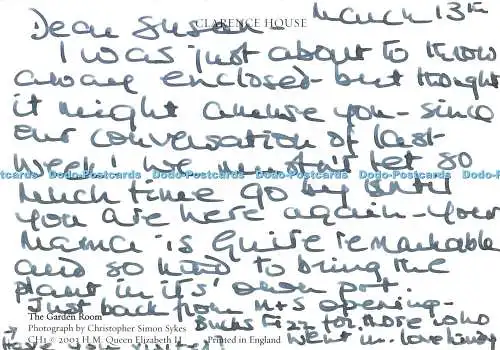 CLARENCE HOUSE
March 13th
Dear Susan -
I was just about to throw
away enclosed - but thought
it might amuse you - since
our conversation of last
week! We mustn't let so
Dodo-Postcards Dodo-Postcards Dodo-Postcards Dodo-Postcards Dodo-Postcards Dodo-Postcards
much time go by until
you are here again - your
Mama is quite remarkable
and so kind to bring the
plant in its' own pot.
Just back from M+S opening -
The Garden Room
Bucks Fizz for those who
Photograph by Christopher Simon Sykes
went in.. love
CH1 © 2003 H.M. Queen Elizabeth II
Printed in England
Have you visited?